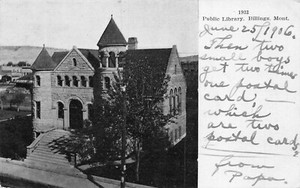 1932
Public Library, Billings, Mont.
June 25/06.
Then two
small boys
get two this
one postal
card, —
which
are two
postal cards,
from
Papa.